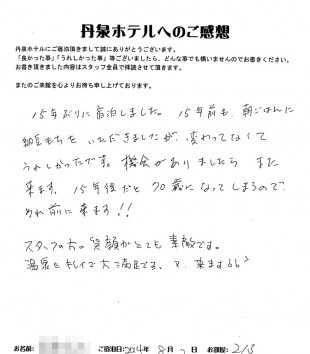 丹泉ホテルへのご感想
丹泉ホテルにご宿泊頂きまして誠にありがとうございます。
「良かった事」「うれしかった事」等ございましたら、どんな事でも構いませんのでお書きください。
お書き頂きました内容はスタッフ全員で拝読させて頂きます。
またのご来館を心よりお待ち申し上げております。
15年ぶりに宿泊しました。 15年前も、朝ごはんに
納豆もちを いただきましたが、変わってなくて
うれしかったです。機会がありましたら また
来ます。15年後だと 70歳になってしまうので、
その前に来ます!!
スタッフの方の笑顔がとても素敵です。
温泉もキレイで大満足です。又、来ます
お名前: ご宿泊日:2014年 8月 日 お部屋: 213